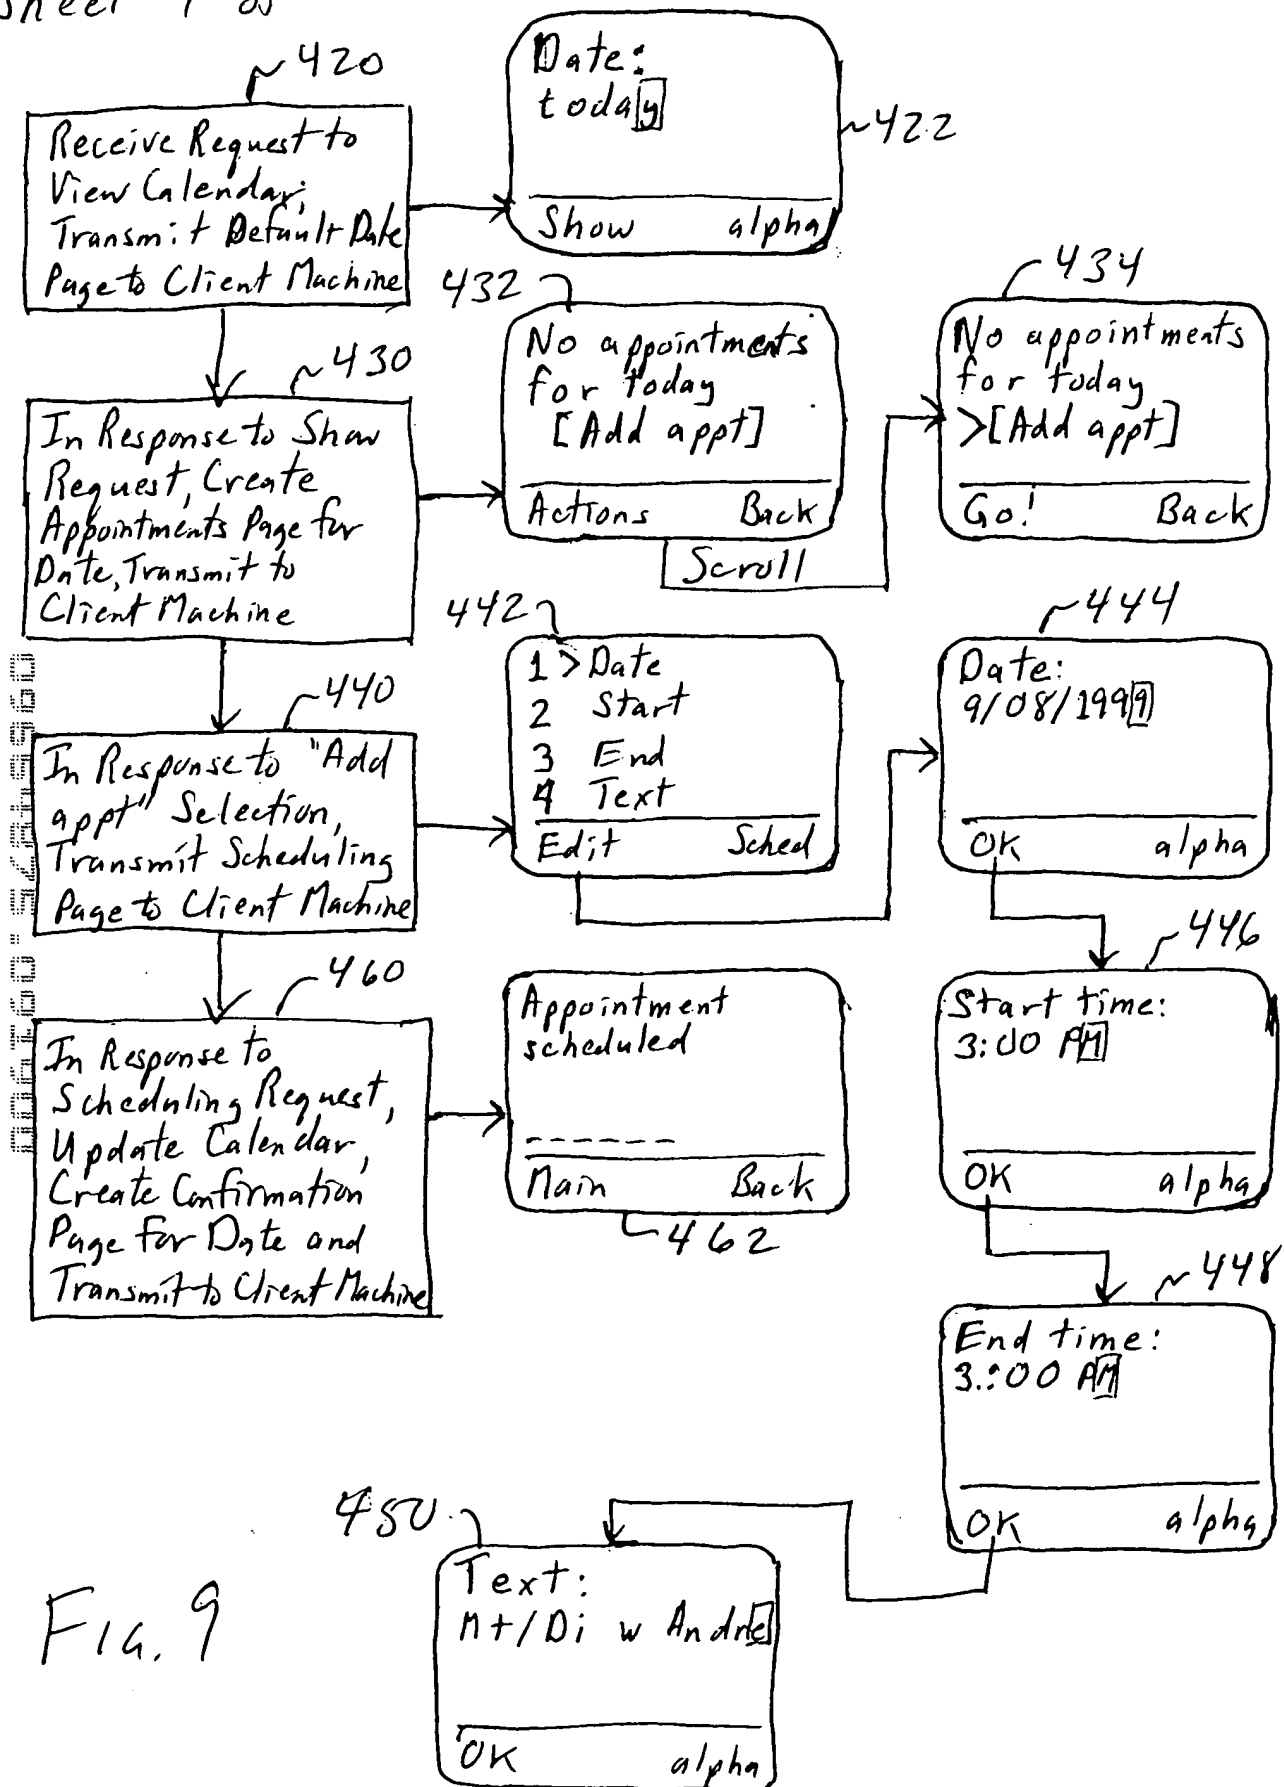 Sheet 9 of
420
Receive Request to
View Calendar;
Transmit Default Date
Page to Client Machine
Date:
today
Show alpha
422
430
In Response to Show
Request, Create
Appointments Page for
Date, Transmit to
Client Machine
432
No appointments
for today
[Add appt]
Actions Back
Scroll
434
No appointments
for today
>[Add appt]
Go! Back
440
In Response to "Add
appt" Selection,
Transmit Scheduling
Page to Client Machine
442
1 > Date
2 Start
3 End
4 Text
Edit Sched
444
Date:
9/08/1999
OK alpha
446
Start time:
3:00 PM
OK alpha
448
End time:
3:00 PM
OK alpha
460
In Response to
Scheduling Request,
Update Calendar,
Create Confirmation
Page for Date and
Transmit to Client Machine
Appointment
scheduled
------
Main Back
462
450
Text:
Mt/Di w Andre
OK alpha
FIG. 9